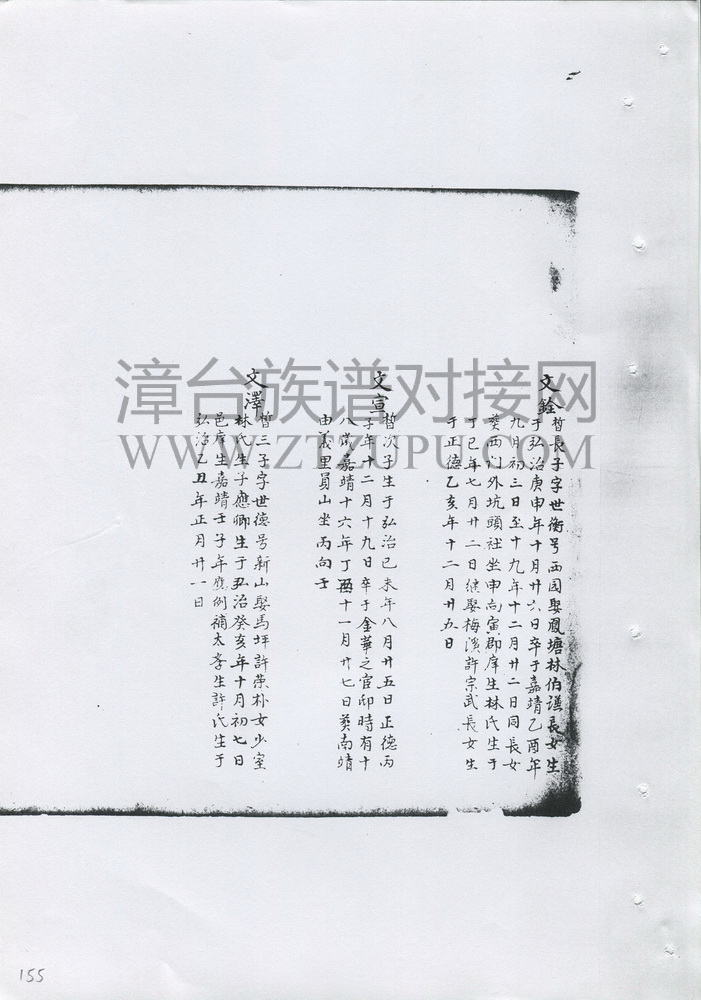 文銓
哲長子字世衡号西园娶鳳塘林伯謙長女生
于弘治庚申年十月廿六日卒于嘉靖乙酉年
九月初三日至十九年十二月廿二日同長女
葵西门外坑頭社坐申向寅郡庠生林氏生于
丁巳年七月廿二日継娶梅溪許宗武長女生
于正德乙亥年十二月廿九日
文宣
哲次子生于弘治己未年八月廿五日正德丙
子年十二月十九日卒于金華之宦邸時有十
八歲嘉靖十六年丁酉十一月廿七日葵南靖
由義里員山坐丙向壬
文澤
哲三子字世德号新山娶馬坪許荣朴女少室
林氏生子應卿生于弘治癸亥年十月初七日
邑庠生嘉靖壬子年應例補太孝生許氏生于
弘治乙丑年正月廿一日
漳台族谱对接网
WWW.ZTZUPU.COM
155